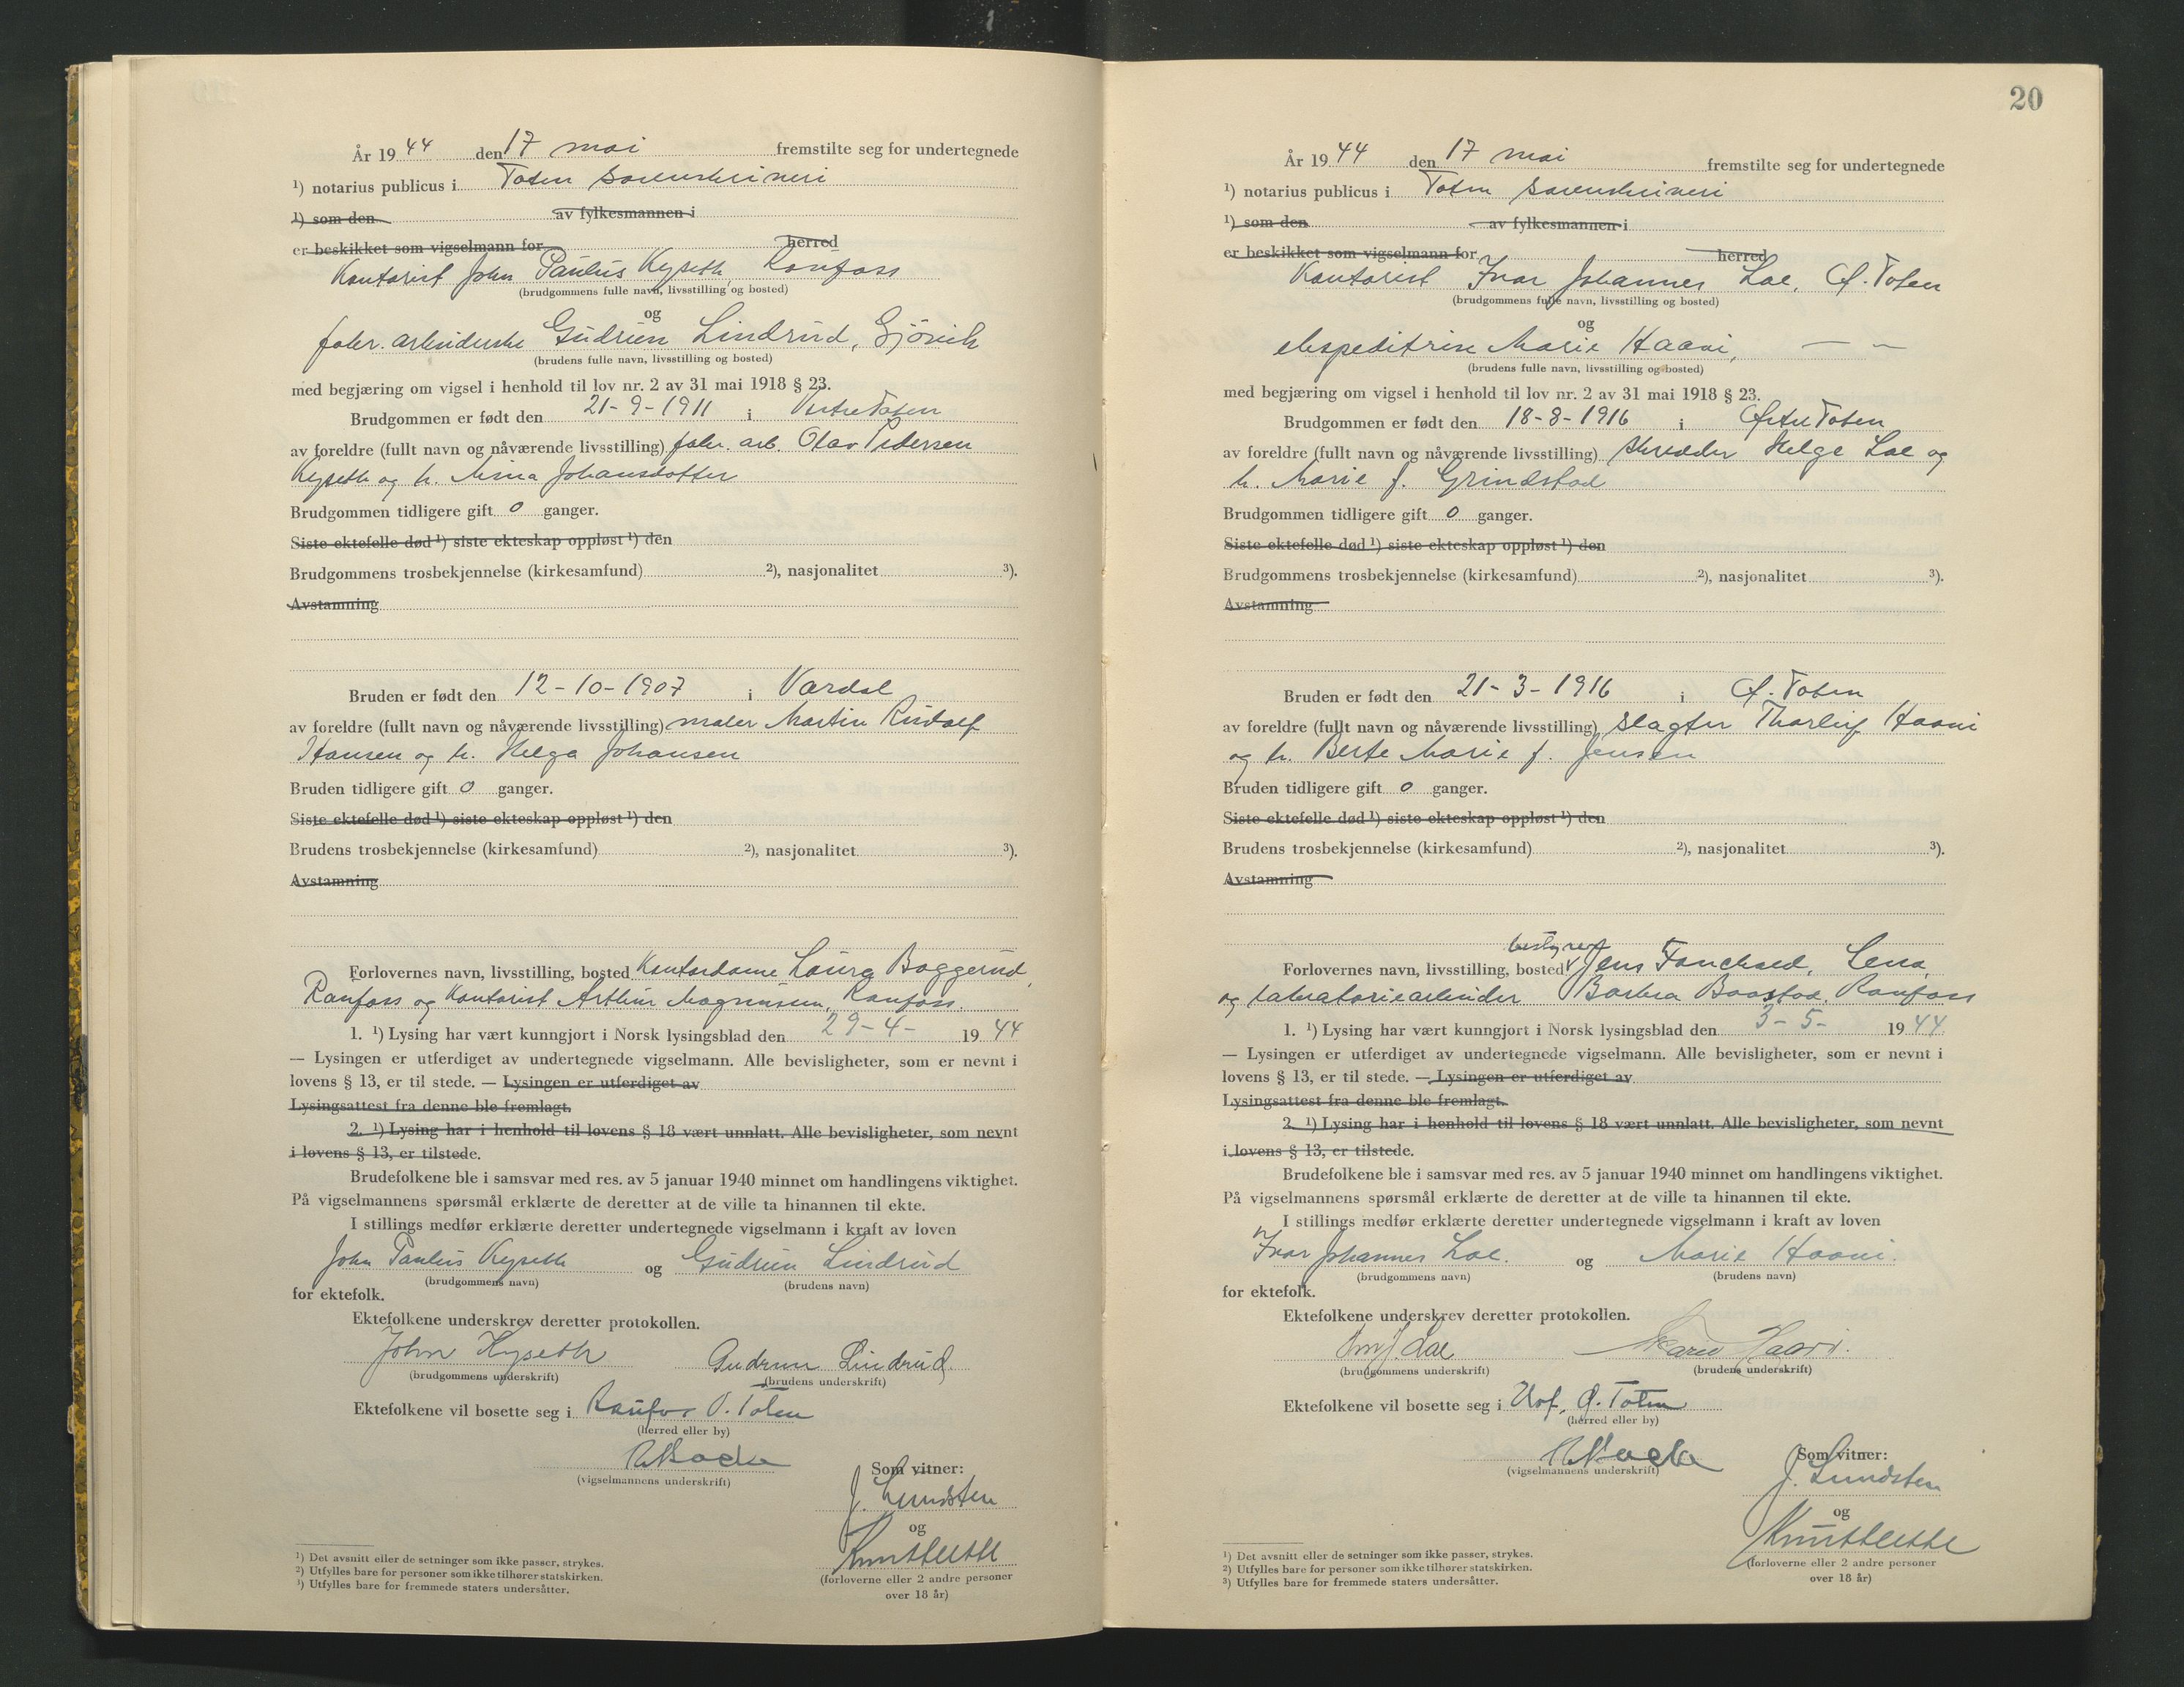 År 19 44 den 17 mai fremstilte seg for undertegnede
¹) notarius publicus i Toten sorenskriveri
¹) som den av fylkesmannen i
er beskikket som vigselmann for herred
Kontorist John Paulus Kyseth, Raufoss
(brudgommens fulle navn, livsstilling og bosted)
og
fabr. arbeiderske Gudrun Lindrud, Gjövik
(brudens fulle navn, livsstilling og bosted)
med begjæring om vigsel i henhold til lov nr. 2 av 31 mai 1918 § 23.
Brudgommen er født den 21-9-1911 i Vestre Toten
av foreldre (fullt navn og nåværende livsstilling) fabr. arb. Olav Pedersen
Kyseth og h. Mina Johansdotter
Brudgommen tidligere gift 0 ganger.
Siste ektefelle død ¹) siste ekteskap oppløst ¹) den
Brudgommens trosbekjennelse (kirkesamfund) ²), nasjonalitet ³).
Avstamning
Bruden er født den 12-10-1907 i Vardal
av foreldre (fullt navn og nåværende livsstilling) maler Martin Rudolf
Hansen og h. Helga Johansen
Bruden tidligere gift 0 ganger.
Siste ektefelle død ¹) siste ekteskap oppløst ¹) den
Brudens trosbekjennelse (kirkesamfund) ²), nasjonalitet ³).
Avstamning
Forlovernes navn, livsstilling, bosted Kontordame Laura Baggerud,
Raufoss og Kontorist Arthur Magnussen, Raufoss.
1. ¹) Lysing har vært kunngjort i Norsk lysingsblad den 29-4- 19 44
— Lysingen er utferdiget av undertegnede vigselmann. Alle bevisligheter, som er nevnt i
lovens § 13, er til stede. — Lysingen er utferdiget av
Lysingsattest fra denne ble fremlagt.
2. ¹) Lysing har i henhold til lovens § 18 vært unnlatt. Alle bevisligheter, som nevnt
i lovens § 13, er tilstede.
Brudefolkene ble i samsvar med res. av 5 januar 1940 minnet om handlingens viktighet.
På vigselmannens spørsmål erklærte de deretter at de ville ta hinannen til ekte.
I stillings medfør erklærte deretter undertegnede vigselmann i kraft av loven
John Paulus Kyseth og Gudrun Lindrud
(brudgommens navn) (brudens navn)
for ektefolk.
Ektefolkene underskrev deretter protokollen.
John Kyseth Gudrun Lindrud
(brudgommens underskrift) (brudens underskrift)
Ektefolkene vil bosette seg i Raufoss V. Toten
(herred eller by)
(vigselmannens underskrift)
Som vitner:
J. Lundsten
og
(forloverne eller 2 andre personer
over 18 år)
¹) Det avsnitt eller de setninger som ikke passer, strykes.
²) Utfylles bare for personer som ikke tilhører statskirken.
³) Utfylles bare for fremmede staters undersåtter.
20
År 19 44 den 17 mai fremstilte seg for undertegnede
¹) notarius publicus i Toten sorenskriveri
¹) som den av fylkesmannen i
er beskikket som vigselmann for herred
Kontorist Ivar Johannes Loe, Ø. Toten
(brudgommens fulle navn, livsstilling og bosted)
og
ekspeditrise Marie Haavi, — —
(brudens fulle navn, livsstilling og bosted)
med begjæring om vigsel i henhold til lov nr. 2 av 31 mai 1918 § 23.
Brudgommen er født den 18-8-1916 i Østre Toten
av foreldre (fullt navn og nåværende livsstilling) skredder Helge Loe og
h. Marie f. Grindstad
Brudgommen tidligere gift 0 ganger.
Siste ektefelle død ¹) siste ekteskap oppløst ¹) den
Brudgommens trosbekjennelse (kirkesamfund) ²), nasjonalitet ³).
Avstamning
Bruden er født den 21-3-1916 i Ø. Toten
av foreldre (fullt navn og nåværende livsstilling) slagter Thorleif Haavi
og h. Berte Marie f. Jensen
Bruden tidligere gift 0 ganger.
Siste ektefelle død ¹) siste ekteskap oppløst ¹) den
Brudens trosbekjennelse (kirkesamfund) ²), nasjonalitet ³).
Avstamning
bestyrer
Forlovernes navn, livsstilling, bosted Jens Fauchald, Lena,
og laboratoriearbeider Borbra Baastad, Raufoss
1. ¹) Lysing har vært kunngjort i Norsk lysingsblad den 3-5- 19 44
— Lysingen er utferdiget av undertegnede vigselmann. Alle bevisligheter, som er nevnt i
lovens § 13, er til stede. — Lysingen er utferdiget av
Lysingsattest fra denne ble fremlagt.
2. ¹) Lysing har i henhold til lovens § 18 vært unnlatt. Alle bevisligheter, som nevnt
i lovens § 13, er tilstede.
Brudefolkene ble i samsvar med res. av 5 januar 1940 minnet om handlingens viktighet.
På vigselmannens spørsmål erklærte de deretter at de ville ta hinannen til ekte.
I stillings medfør erklærte deretter undertegnede vigselmann i kraft av loven
Ivar Johannes Loe. og Marie Haavi.
(brudgommens navn) (brudens navn)
for ektefolk.
Ektefolkene underskrev deretter protokollen.
Ivar J. Loe Marie Haavi.
(brudgommens underskrift) (brudens underskrift)
Ektefolkene vil bosette seg i Ø. Toten
(herred eller by)
(vigselmannens underskrift)
Som vitner:
J. Lundsten
og
(forloverne eller 2 andre personer
over 18 år)
¹) Det avsnitt eller de setninger som ikke passer, strykes.
²) Utfylles bare for personer som ikke tilhører statskirken.
³) Utfylles bare for fremmede staters undersåtter.